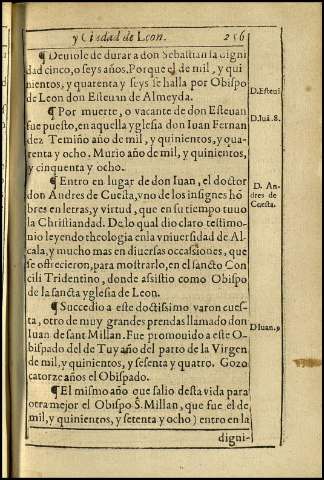 y Ciudad de Leon. 256
¶ Deuiole de durar a don Sebastian la digni
dad cinco, o seys años. Porque el de mil, y qui
nientos, y quarenta y seys se halla por Obispo
de Leon don Esteuan de Almeyda.
D. Esteuā
¶ Por muerte, o vacante de don Esteuan
fue puesto, en aquella yglesia don Iuan Fernan
D. Iuā. 8.
dez Temiño año de mil, y quinientos, y qua-
renta y ocho. Murio año de mil, y quinientos,
y cinquenta y ocho.
¶ Entro en lugar de don Iuan, el doctor
don Andres de Cuesta, vno de los insignes hō
bres en letras, y virtud, que en su tiempo tuuo
D. An
dres de
Cuesta.
la Christiandad. De lo qual dio claro testimo-
nio leyendo theologia en la vniuersidad de Al-
cala, y mucho mas en diuersas occasiones, que
se ofrecieron, para mostrarlo, en el sancto Con
cili Tridentino, donde assistio como Obispo
de la sancta yglesia de Leon.
¶ Succedio a este doctissimo varon cues-
ta, otro de muy grandes prendas llamado don
Iuan de sant Millan. Fue promouido a este O-
D Iuan. 9
bispado del de Tuy año del parto de la Virgen
de mil, y quinientos, y sesenta y quatro. Gozo
catorze años el Obispado.
¶ El mismo año que salio desta vida para
otra mejor el Obispo S. Millan, que fue el de
mil, y quinientos, y setenta y ocho) entro en la
digni-